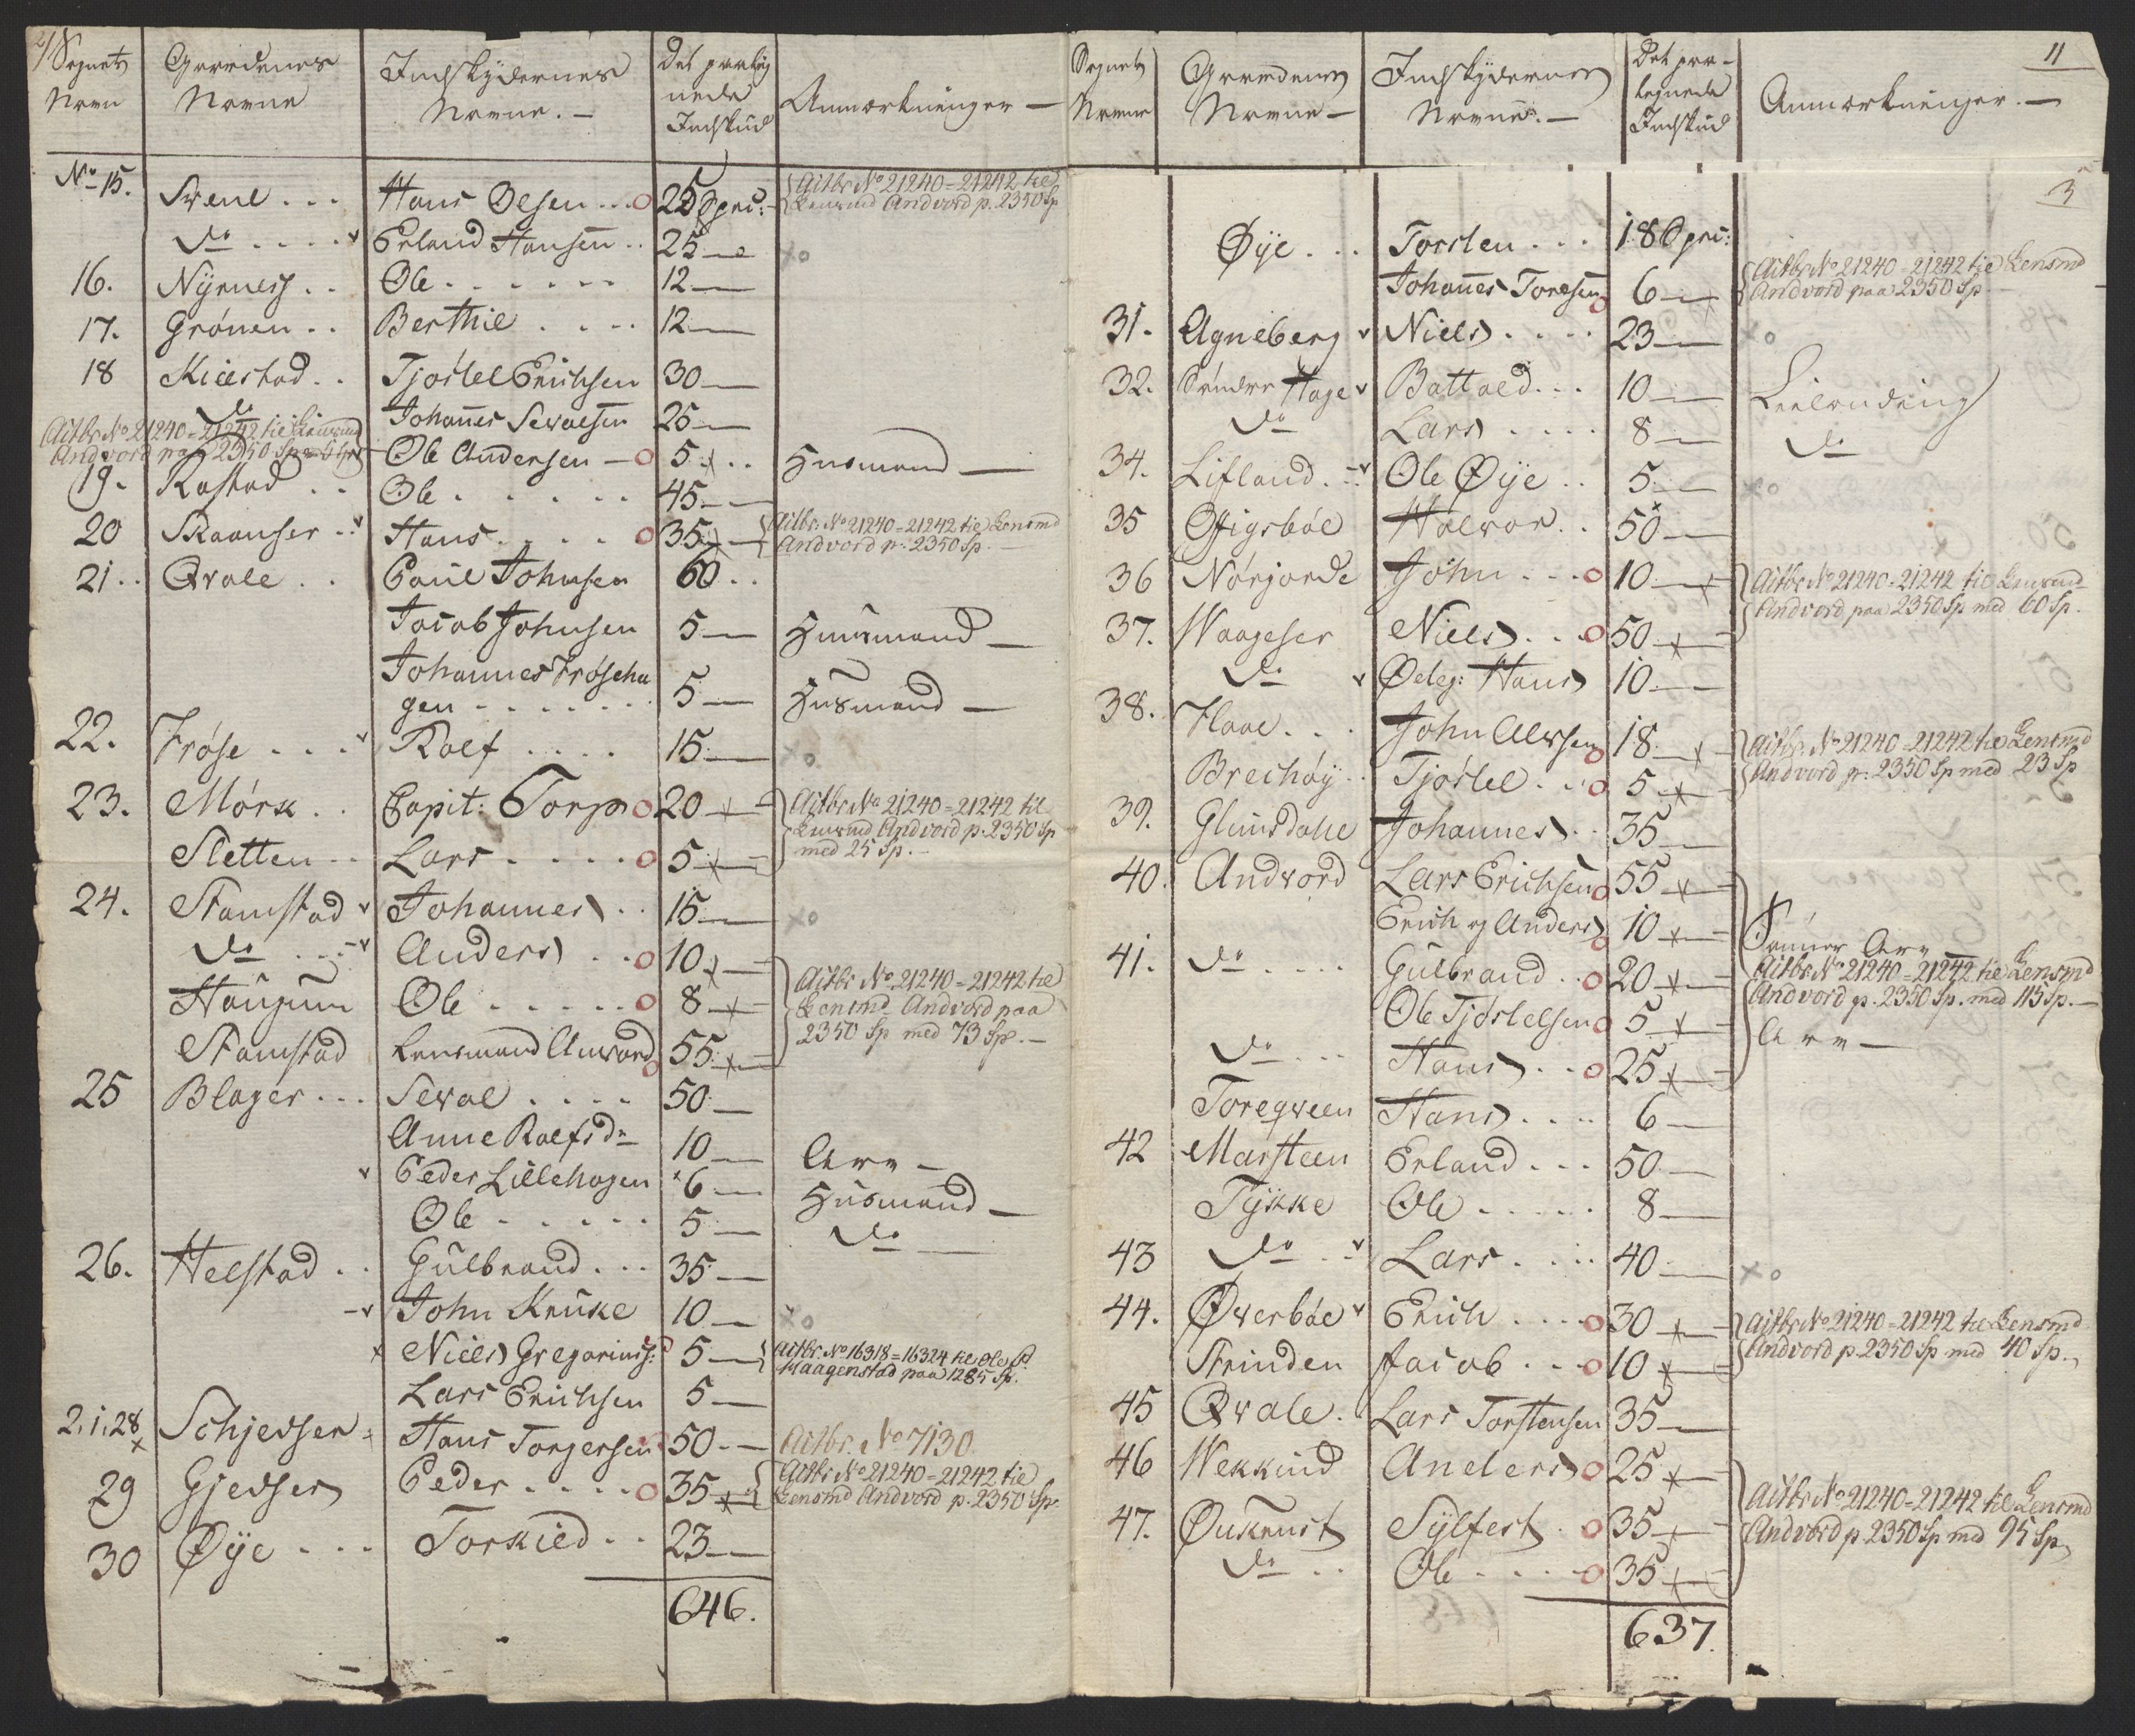 Sognets Navn | Gaardenes Navne | Indskydernes Navne. — | Det paalignede Indskud | Anmærkninger —
No 15. Sveul . . . Hans Olsen . . 25 Spec: Actbr No 21240 = 21242 til
Lensmd Andvord p. 2350 Sp
do . . . . Erland Hansen . . 25 —
16. Nyrness . . Ole . . . . . . 12 —
17. Grönen . . Berthil . . . . 12 —
18 Kielstad . . Tjostel Erichsen 30 —
do Johannes Sevalsen 25 —
Actbr No 21240 = 21242 til Lensmd
Andvord paa 2350 Sp
Ole Andersen — 5 . . Husmand —
19. Rastad . . Ole . . . . . . 45 —
20 Skaanser . . Hans . . . . 35 — Actbr. No 21240 = 21242 til Lensmd
Andvord p. 2350 Sp. —
21 . . Qvale . . Paul Johnsen 60 . .
Jacob Johnsen 5 — Huusmand —
Johannes Frösehagen . . . . . 5 — Husmand —
22. Fröse . . . . Rolf . . . . 15 — xo
23. Mörk . . Capit: Torp 20 — Actbr No 21240 = 21242 til
Lensmd Andvord p. 2350 Sp
med 25 Sp. —
Sletten . . Lars . . . . . 5 —
24. Stamstad Johannes . . 15 — xo
do . . . Anders . . 10 —
Haugum Ole . . . . . 8 — Actbr No. 21240 = 21242 til
Lensmd Andvord paa
2350 Sp med 73 Sp. —
Stamstad Lensmand Anvord 55 —
25 Blager . . . Seval . . . . 50 —
Anne Rolfsdr 10 — Arv —
Peder Lillehagen 6 — Husmand —
Ole . . . . . 5 — do —
26. Helstad . . Gulbrand . . . 35 —
John Kruke 10 — xo
Niels Gregorius: 5 — Actbr No 16318 = 16324 til Ole
Haagenstad paa 1285 Sp.
Lars Erichsen 5 —
2,1,28 Schjedser Hans Torgersen 50 — Actbr. No 7130
29 Gjedser Peder . . . . 35 — Actbr No 21240 = 21242 til
Lensmd Andvord p. 2350 Sp.
30 Öye . . . Torkild . . 23 —
646.
11
Sognets Navne | Gaardenes Navne — | Indskydernes Navne. — | Det paalegnede Indskud | Anmærkninger. —
3
Øye . . . Torsten . . . 18 Spec:
Johannes Toresen 6 — Actbr No 21240 = 21242 til Lensmd
Andvord paa 2350 Sp —
31. Agneberg Niels . . . . 23 — xo
32. Søndre Hage Battold . . . 10 — Leilending
do Lars . . . . 8 — do
34. Lifland . . Ole Øye . . 5 — xo
35 Offigsböl Halvor . . 50 —
36 Nörjorde John . . . 10 — Actbr No 21240 = 21242 til Lensmd
Andvord paa 2350 Sp med 60 Sp.
37. Waageser Niels . . 50 —
do Ödeg: Hans 10 —
38. Flaae . . . John Alvsen 18 — Actbr. No 21240 = 21242 til Lensmd
Andvord p. 2350 Sp med 23 Sp
Brechöy . . Tjöstel . . 5 —
39. Glimsdalle Johannes . . 35 —
40. Andvord Lars Erichsen 55 —
Erich og Anders 10 — Sønner Arv —
41. do . . . . Gulbrand . . 20 — Actbr No 21240 = 21242 til Lensmd
Andvord p. 2350 Sp. med 115 Sp. —
Ole Tjöstelsen 5 — Arv —
do . . . Hans . . 25 —
Toreqveen Hans . . . . 6 —
42 Marsteen Erland . . . 50 —
Tykke Ole . . . . . 8 —
43 do . . Lars . . . . 40 — xo
44. Øverböe Erich . . . 30 — Actbr No 21240 = 21242 til Lensmd
Andvord p. 2350 Sp med 40 Sp.
Strinden Jacob . . . 10 —
45 Qvale . Lars Torstensen 35 —
46 Wekkind Anders 25 — Actbr No 21240 = 21242 til Lensmd
Andvord p. 2350 Sp med 95 Sp
47. Øukrust Sylfest . 35 —
do . . Ole . . . . 35 —
637.